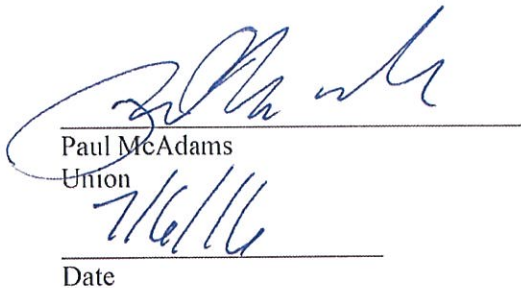 Paul McAdams
Union
7/6/16
Date